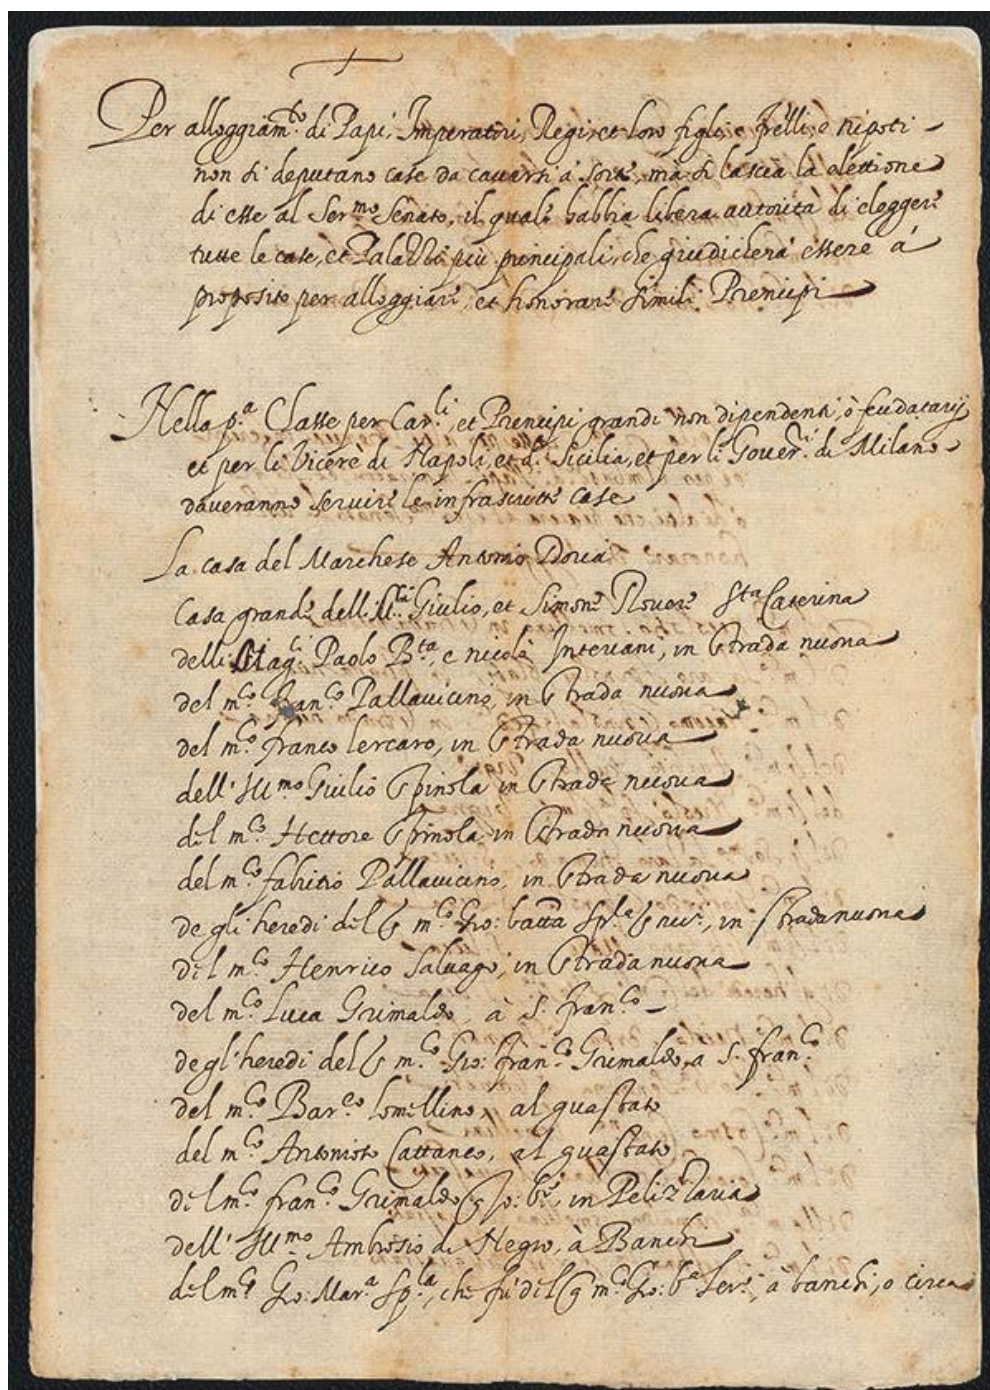 Per alloggiam.to di Papi, Imperatori, Regi, et loro figli, e frelli, e nipoti -
non si deputano case da cavarsi à sorte, mà si lascia la elettione
di esse al Ser.mo Senato, il quale habbia libera autorità di eleggere
tutte le case, et Palazzi più principali, che giudicherà essere à
proposito per alloggiare, et honorare simili Prencipi
Nella p.a Classe per Car.li, et Prencipi grandi non dipendenti, ò feudatarij
et per li Vicerè di Napoli, et di Sicilia, et per li Gover.ri di Milano -
doveranno servire le infrascritte case
La casa del Marchese Antonio Doria
Casa grande delli M.ci Giulio, et Simone Rovere S.ta Caterina
delli Mag.ci Paolo B.ta, e nicolà Interiani, in Strada nuova
del m.co Fran.co Pallavicino, in Strada nuova
del m.co franco lercaro, in Strada nuova
dell' Ill.mo Giulio Spinola in Strada nuova
del m.co Hettore Spinola in Strada nuova
del m.co fabritio Pallavicino, in Strada nuova
de gli heredi del q m.co Gio: batta Sp.la, in strada nuova
del m.co Henrico Salvago, in Strada nuova
del m.co Luca Grimaldo, à S. fran.co -
de gl'heredi del q m.co Gio: fran.co Grimaldo, a S. fran.co
del m.co Bar.eo lomellino, al guastato
del m.co Antonioto Cattaneo, al guastato
del m.co fran.co Grimaldo q Io: b.e, in Pelizzaria
dell' Ill.mo Ambrosio di Negro, à Banchi
del m.co Gio: Mar.a Sp.la, che fù del q m.co Gio: b.a Ler.o, à banchi, o circa